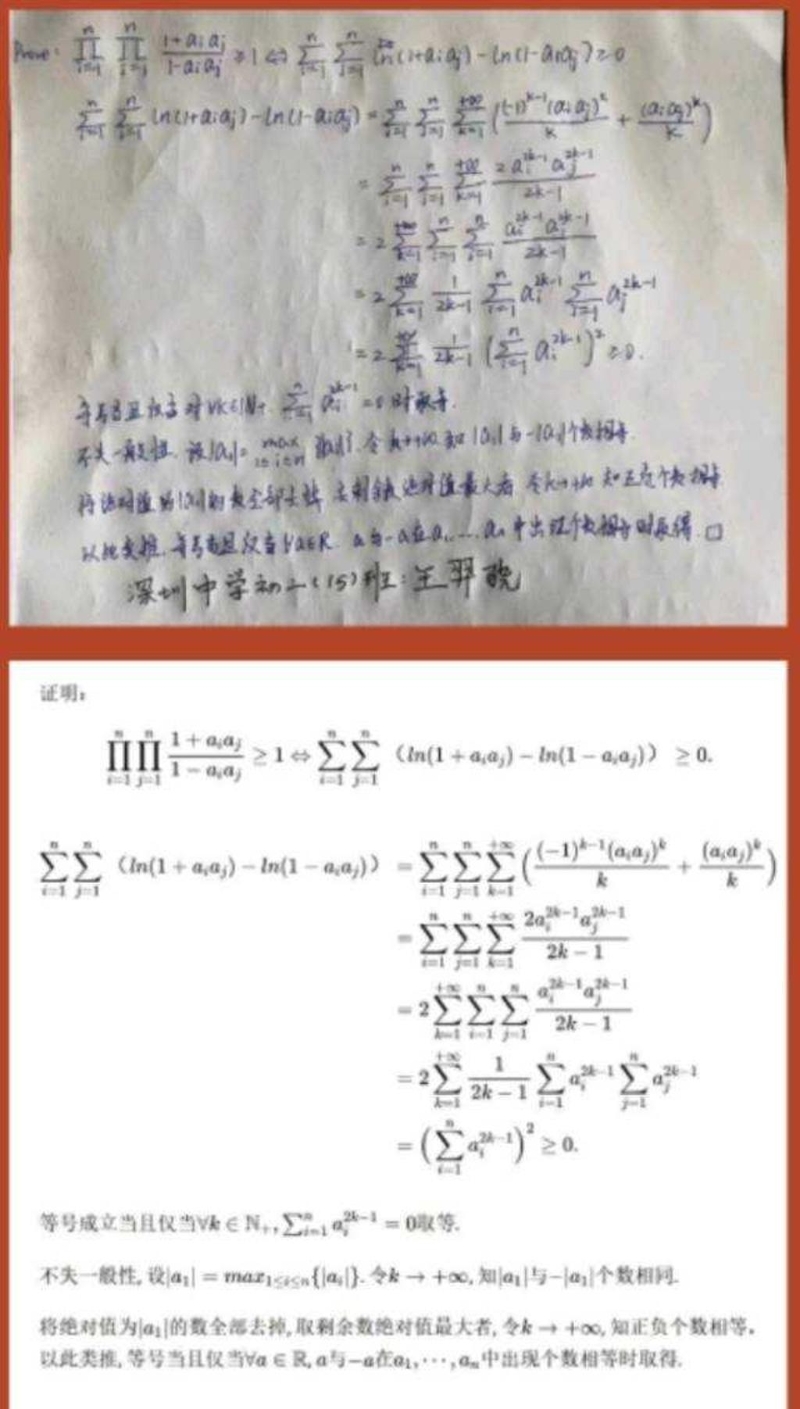 Prove: ∏_{i=1}^{n} ∏_{j=1}^{n} (1+a_i a_j)/(1-a_i a_j) ≥ 1 ⇔ ∑_{i=1}^{n} ∑_{j=1}^{n} ln(1+a_i a_j) - ln(1-a_i a_j) ≥ 0
∑_{i=1}^{n} ∑_{j=1}^{n} ln(1+a_i a_j) - ln(1-a_i a_j) = ∑_{i=1}^{n} ∑_{j=1}^{n} ∑_{k=1}^{+∞} ((-1)^{k-1}(a_i a_j)^k/k + (a_i a_j)^k/k)
= ∑_{i=1}^{n} ∑_{j=1}^{n} ∑_{k=1}^{+∞} 2a_i^{2k-1} a_j^{2k-1}/(2k-1)
= 2 ∑_{k=1}^{+∞} ∑_{i=1}^{n} ∑_{j=1}^{n} a_i^{2k-1} a_j^{2k-1}/(2k-1)
= 2 ∑_{k=1}^{+∞} 1/(2k-1) ∑_{i=1}^{n} a_i^{2k-1} ∑_{j=1}^{n} a_j^{2k-1}
= 2 ∑_{k=1}^{+∞} 1/(2k-1) (∑_{i=1}^{n} a_i^{2k-1})^2 ≥ 0.
等号当且仅当对∀k∈N+, ∑_{i=1}^{n} a_i^{2k-1} = 0时取等.
不失一般性, 设|a_1| = max_{1≤i≤n}{|a_i|}. 令k→+∞, 知|a_1|与-|a_1|个数相等.
将绝对值为|a_1|的数全部去掉, 取剩余数绝对值最大者, 令k→+∞ 知正负个数相等
以此类推, 等号当且仅当∀a∈R, a与-a在a_1, …, a_n中出现个数相等时取得. □
深圳中学初二(15)班: 王羿
证明:
∏_{i=1}^{n} ∏_{j=1}^{n} (1+a_i a_j)/(1-a_i a_j) ≥ 1 ⇔ ∑_{i=1}^{n} ∑_{j=1}^{n} (ln(1+a_i a_j) - ln(1-a_i a_j)) ≥ 0.
∑_{i=1}^{n} ∑_{j=1}^{n} (ln(1+a_i a_j) - ln(1-a_i a_j)) = ∑_{i=1}^{n} ∑_{j=1}^{n} ∑_{k=1}^{+∞} ((-1)^{k-1}(a_i a_j)^k/k + (a_i a_j)^k/k)
= ∑_{i=1}^{n} ∑_{j=1}^{n} ∑_{k=1}^{+∞} 2a_i^{2k-1} a_j^{2k-1}/(2k-1)
= 2 ∑_{k=1}^{+∞} ∑_{i=1}^{n} ∑_{j=1}^{n} a_i^{2k-1} a_j^{2k-1}/(2k-1)
= 2 ∑_{k=1}^{+∞} 1/(2k-1) ∑_{i=1}^{n} a_i^{2k-1} ∑_{j=1}^{n} a_j^{2k-1}
= (∑_{i=1}^{n} a_i^{2k-1})^2 ≥ 0.
等号成立当且仅当∀k ∈ N_+, ∑_{i=1}^{n} a_i^{2k-1} = 0取等.
不失一般性, 设|a_1| = max_{1≤i≤n}{|a_i|}. 令k → +∞, 知|a_1|与-|a_1|个数相同.
将绝对值为|a_1|的数全部去掉, 取剩余数绝对值最大者, 令k → +∞, 知正负个数相等,
以此类推, 等号当且仅当∀a ∈ R, a与-a在a_1, ⋯, a_n中出现个数相等时取得.